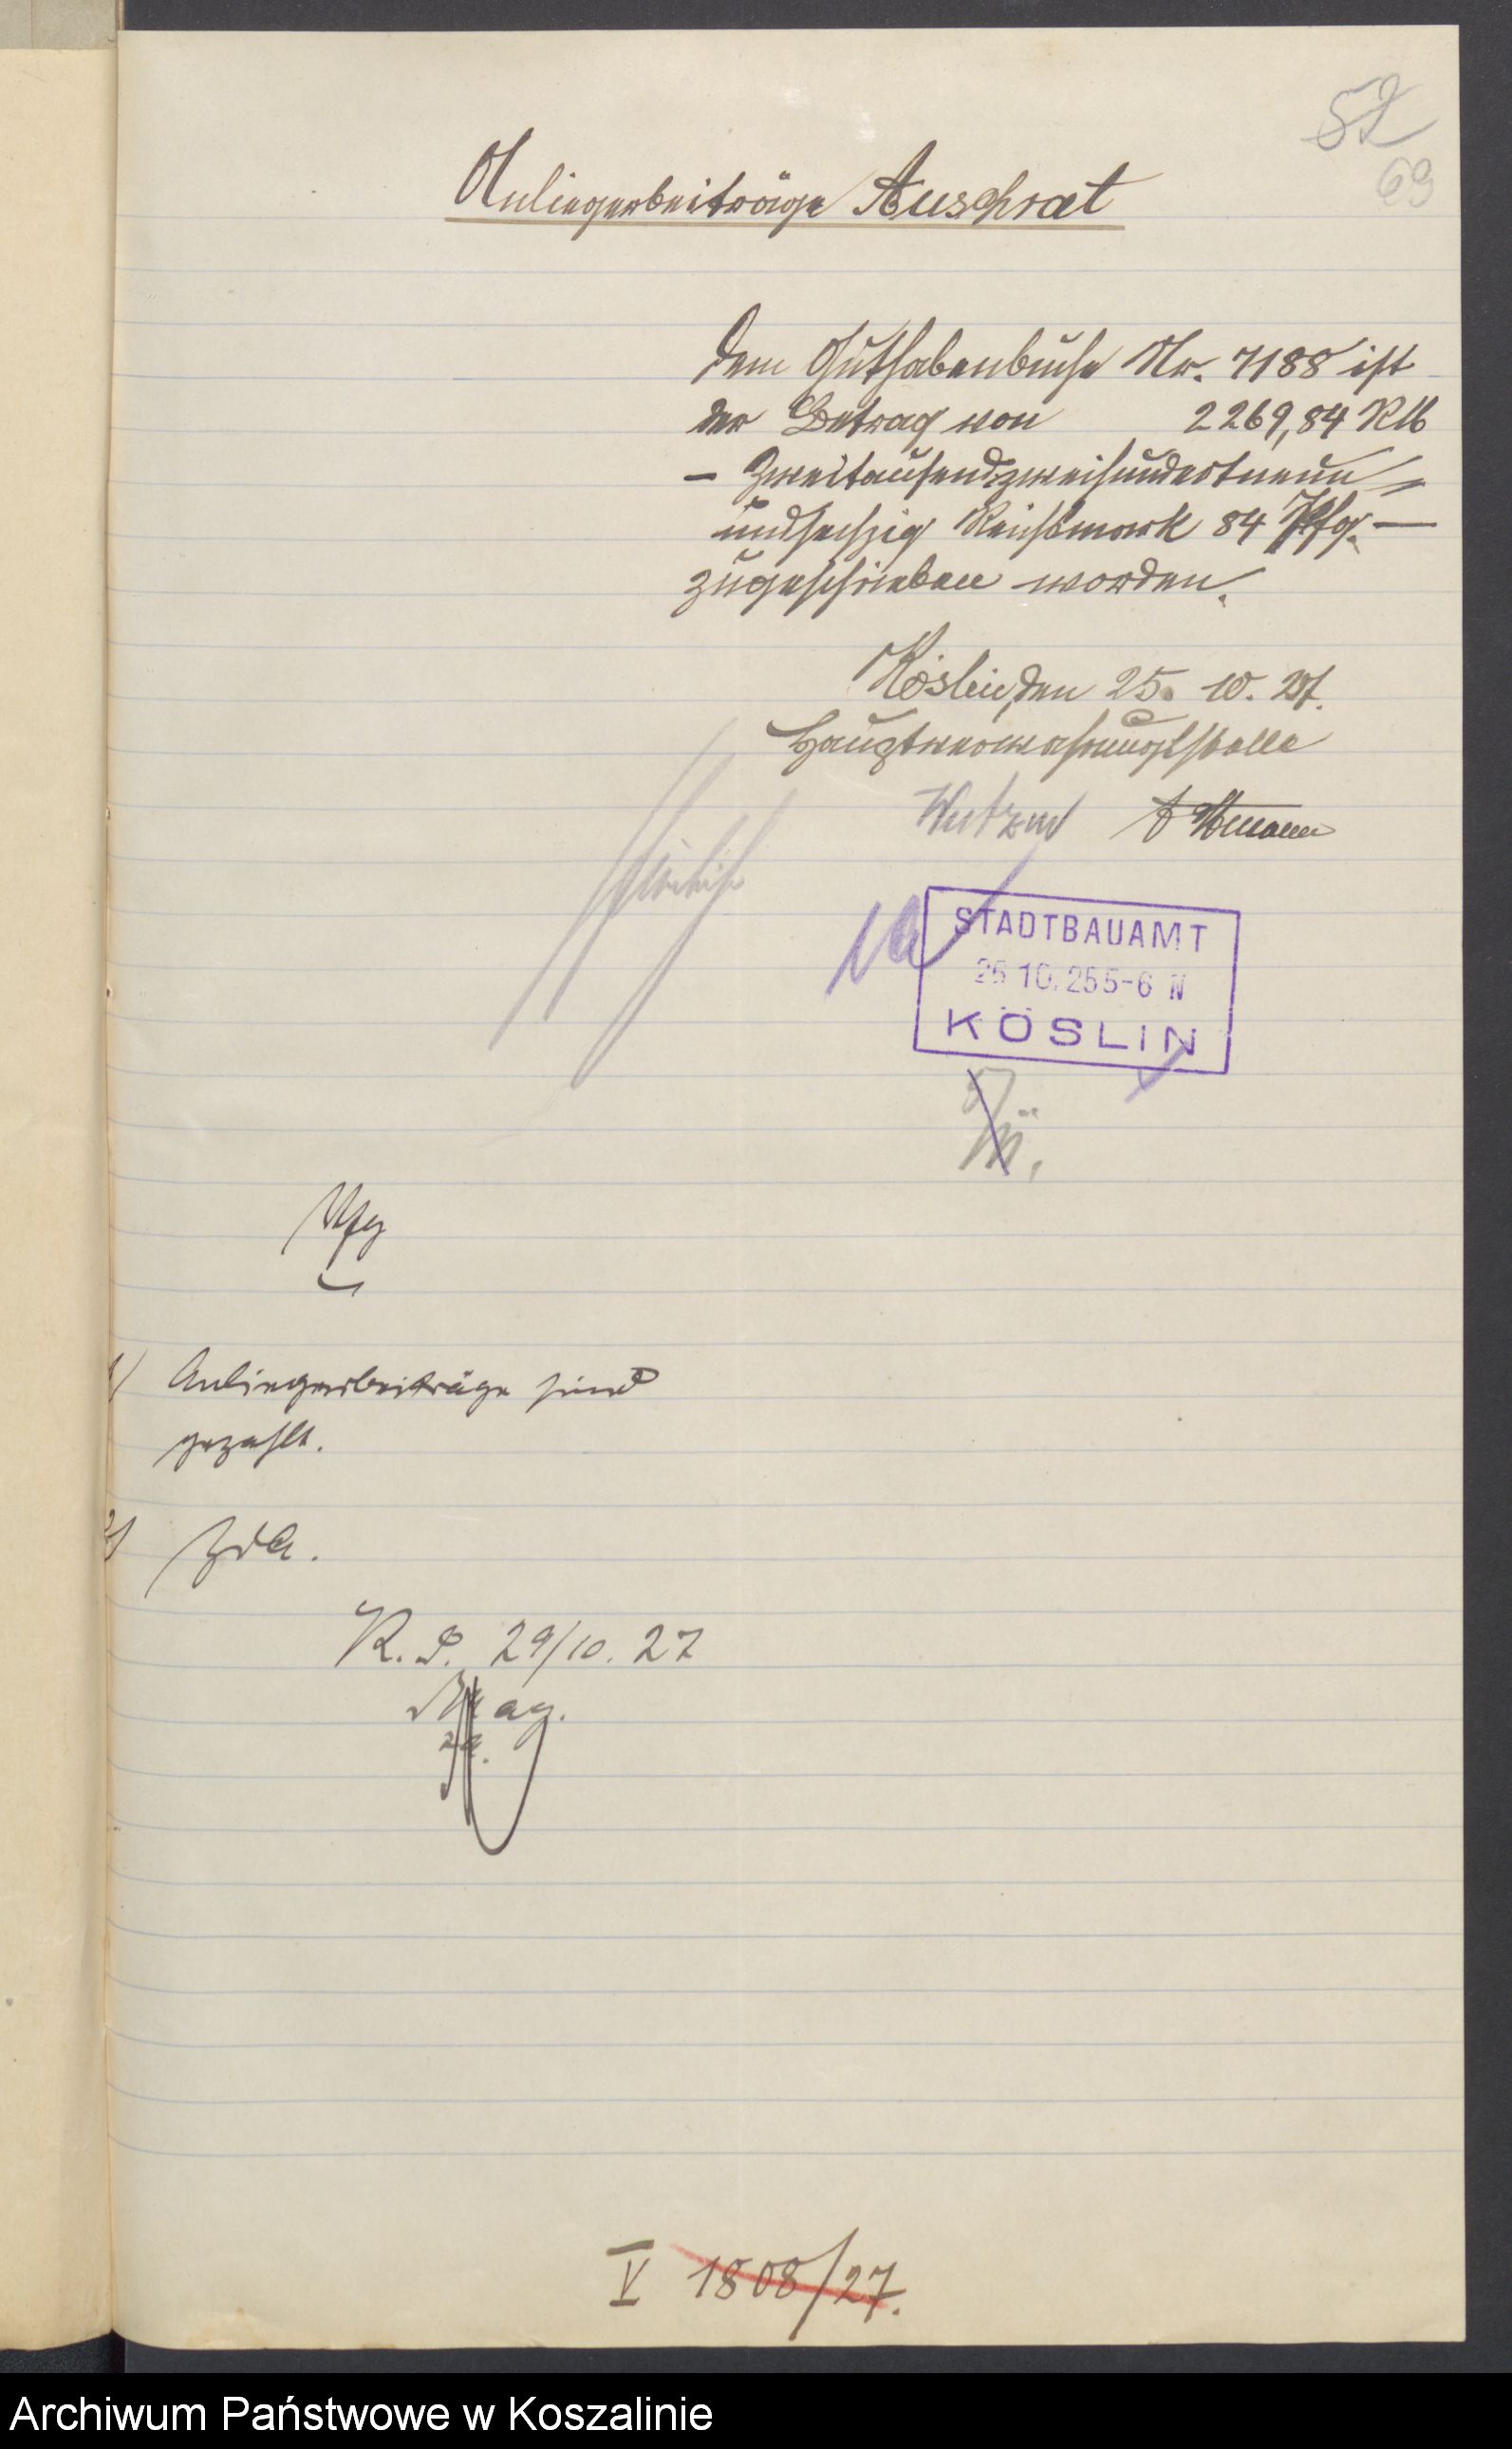 52
69
Anliegerbeiträge Auschrat
Dem Guthabenbuche Nr. 7188 ist
der Betrag von 2269,84 RM
- Zweitausendzweihundertneun =
undsechzig Reichsmark 84 Pfg. —
zugeschrieben worden.
Köslin, den 25. 10. 27.
Hauptverwahrungsstelle
STADTBAUAMT
25 10. 25 5-6 N
KÖSLIN
Vfg
1) Anliegerbeiträge sind
gezahlt.
2) ZdA.
K. d. 29/10. 27
Mag.
V 1808/27.
Archiwum Państwowe w Koszalinie